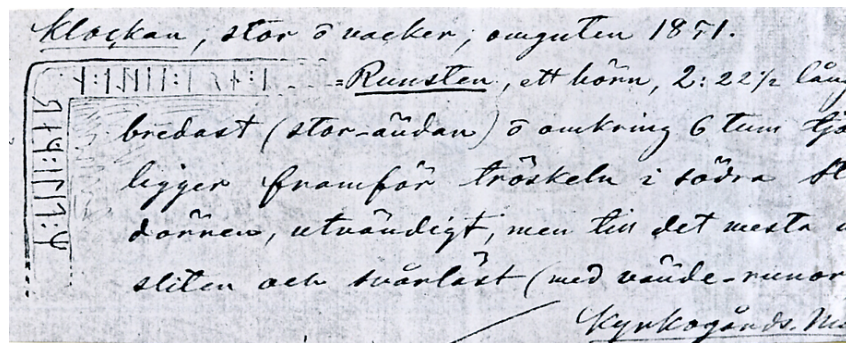 Klockan, stor o vacker, omguten 1851.
=Runsten, ett hörn, 2: 22½ lång
bredast (stor-ändan) o omkring 6 tum tjo
ligger framför tröskeln i södra st
dörren, utvändigt, men till det mesta
sliten och svårläst (med vände-runor
Kyrkogårds-